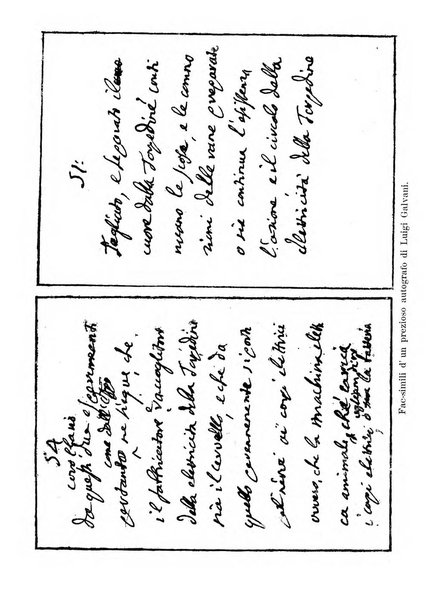 51:
tagliato, e separato il
cuore dalla Torpedine conti
nuano le scosse, e le commo
zioni delle rane preparate
o sia continua l'esistenza
l'azione e il circolo della
elettricità della Torpedine
54
corollario
da questi due esperimenti
come dall'
ne siegue che
il fabbricatore, raccoglitore
della elettricità della Torpedine
sia il cervello, e che da
quello
ai corpi elettrici
ovvero, che la macchina elettri
ca animale, che carica
i corpi elettrici
Fac-simili d' un prezioso autografo di Luigi Galvani.